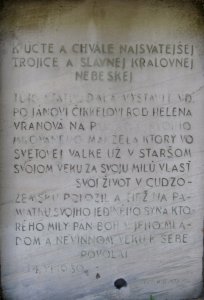 K UCTE A CHVÁLE NAJSVATEJŠEJ
TROJICE A SLAVNEJ KRALOVNEJ
NEBESKEJ
TUTO STATUU DALA VYSTAVIŤ VD.
PO JÁNOVI CIRKELOVI ROD HELENA
VRANOVÁ NA
MANŽELA KTORY VO
SVETOVEJ VALKE UŽ V STARŠOM
SVOJOM VEKU ZA SVOJU MILÚ VLASŤ
SVOJ ŽIVOT V CUDZO-
ZEMSKU POLOŽIL A TIEŽ NA PA-
MIATKU SVOJHO JEDINÉHO SYNA KTO-
RÉHO MILÝ PAN BOH V JEHO MLA-
DOM A NEVINNOM VEKU K SEBE
POVOLAL